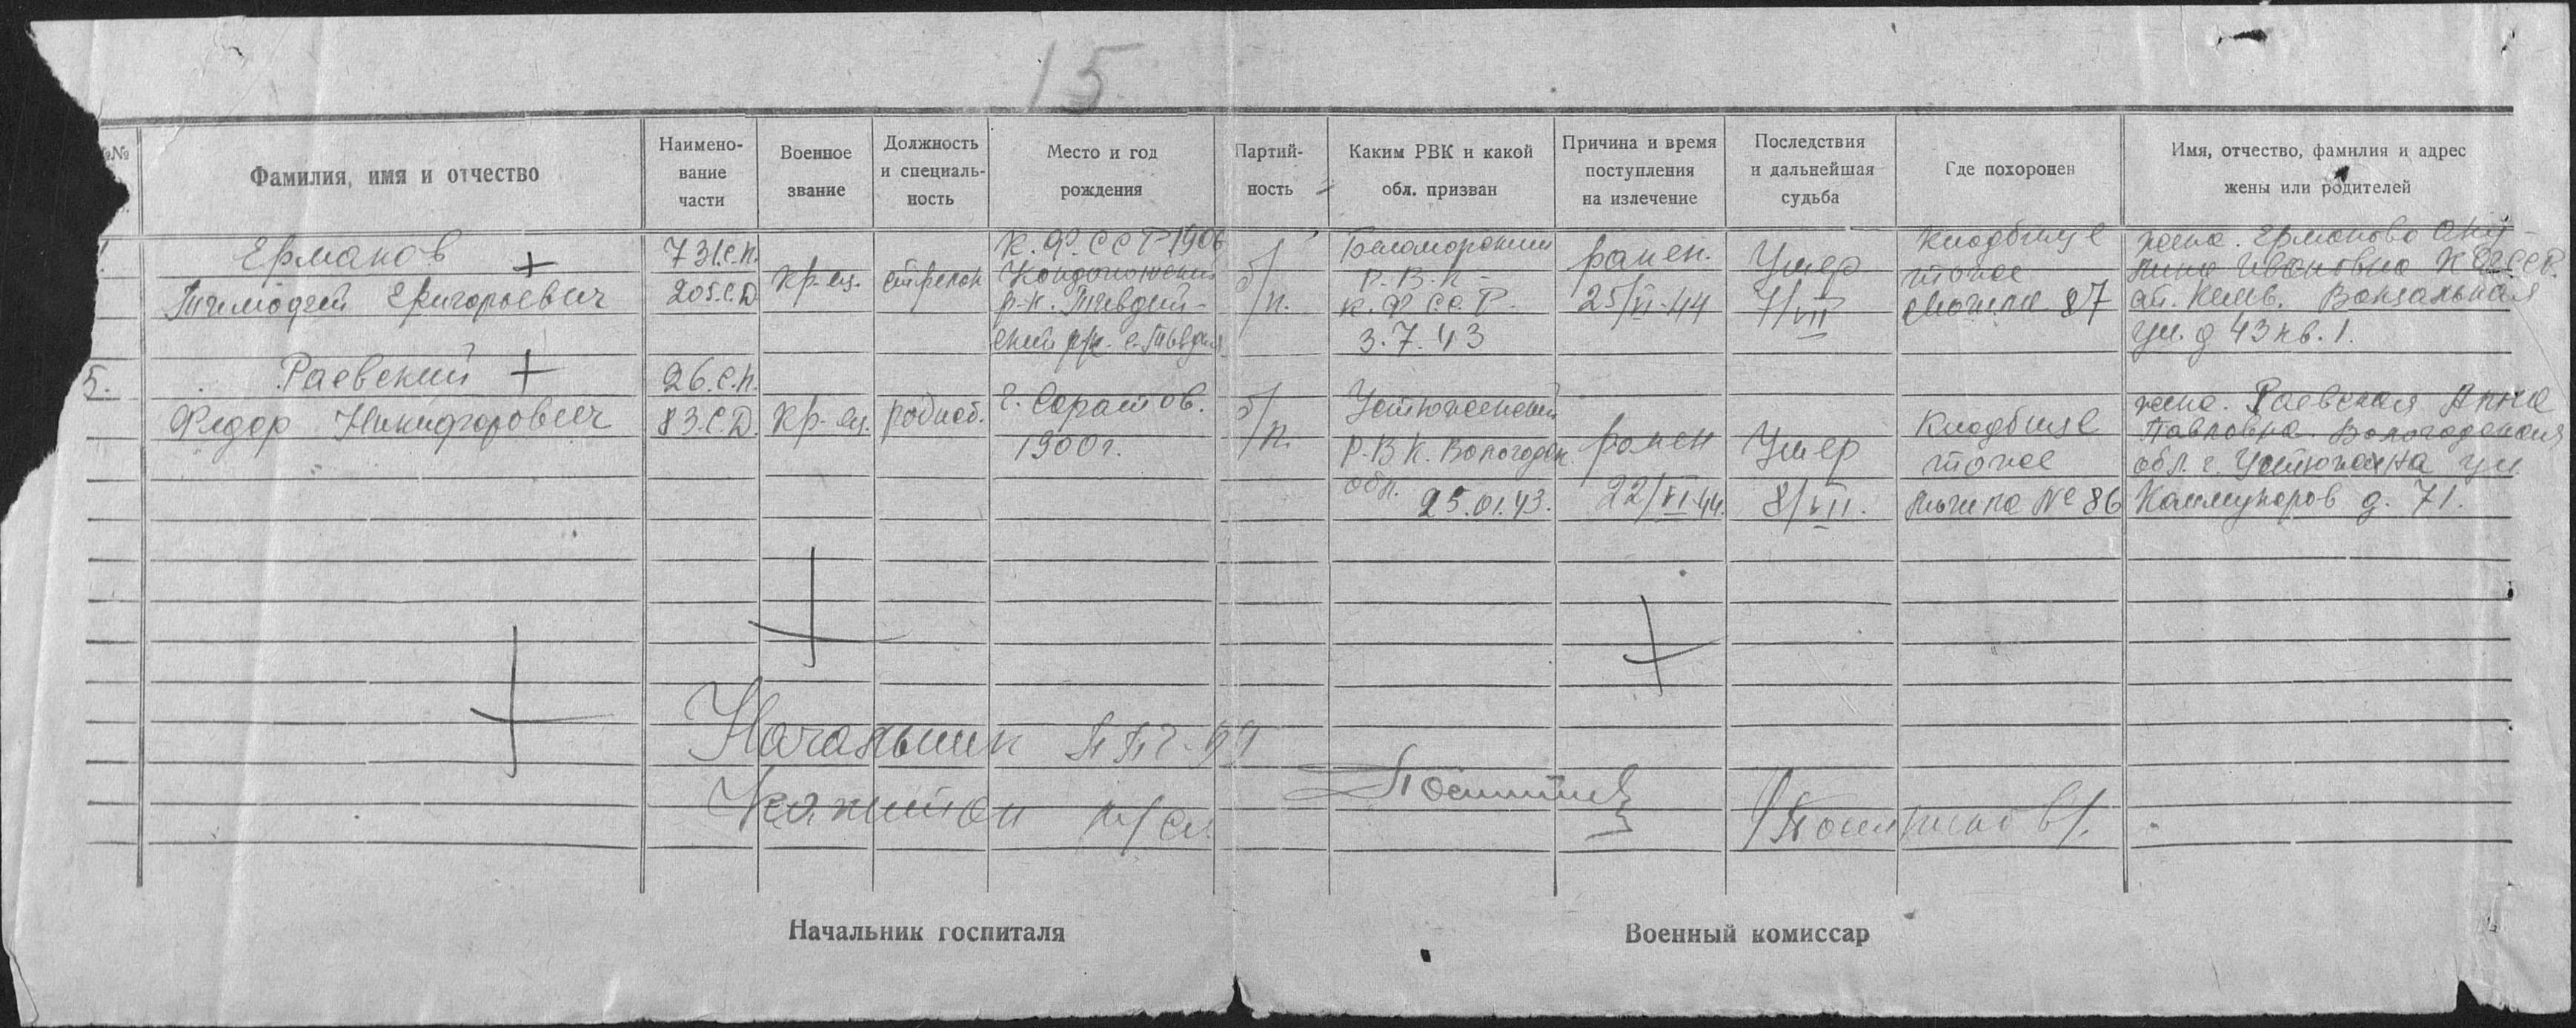 15
№№
Фамилия, имя и отчество
Наимено-
вание
части
Военное
звание
Должность
и специаль-
ность
Место и год
рождения
Партий-
ность
Каким РВК и какой
обл. призван
Причина и время
поступления
на излечение
Последствия
и дальнейшая
судьба
Где похоронен
Имя, отчество, фамилия и адрес
жены или родителей
Ерманов +
Тимофей Григорьевич
731 с.п.
205. С.Д.
кр-ец.
стрелок
К. Ф. ССР 1906
Кондопожский
р-н. Тивдий-
ский с. Тивдия
б/п.
Беломорский
Р. В. К
К. Ф. С.С.Р.
3.7.43
ранен.
25/VI-44
Умер
7/VII
Кладбище
могила 87
жена. Ерманова
Ивановна К Ф ССР.
ст. Кемь. Вокзальная
ул. д 43 кв. 1.
5.
Раевский +
Федор Никифорович
26. с.п.
83. С.Д.
кр-ец.
г. Саратов.
1900 г.
б/п.
Устюженский
Р. В К. Вологодск.
обл. 25.01.43.
ранен
22/VI-44.
Умер
8/VII.
Кладбище
могила № 86
жена. Раевская Анна
Павловна. Вологодская
обл. г. Устюжна ул.
Коммунаров д. 71.
Начальник ППГ
Капитан м/сл.
Начальник госпиталя
Военный комиссар